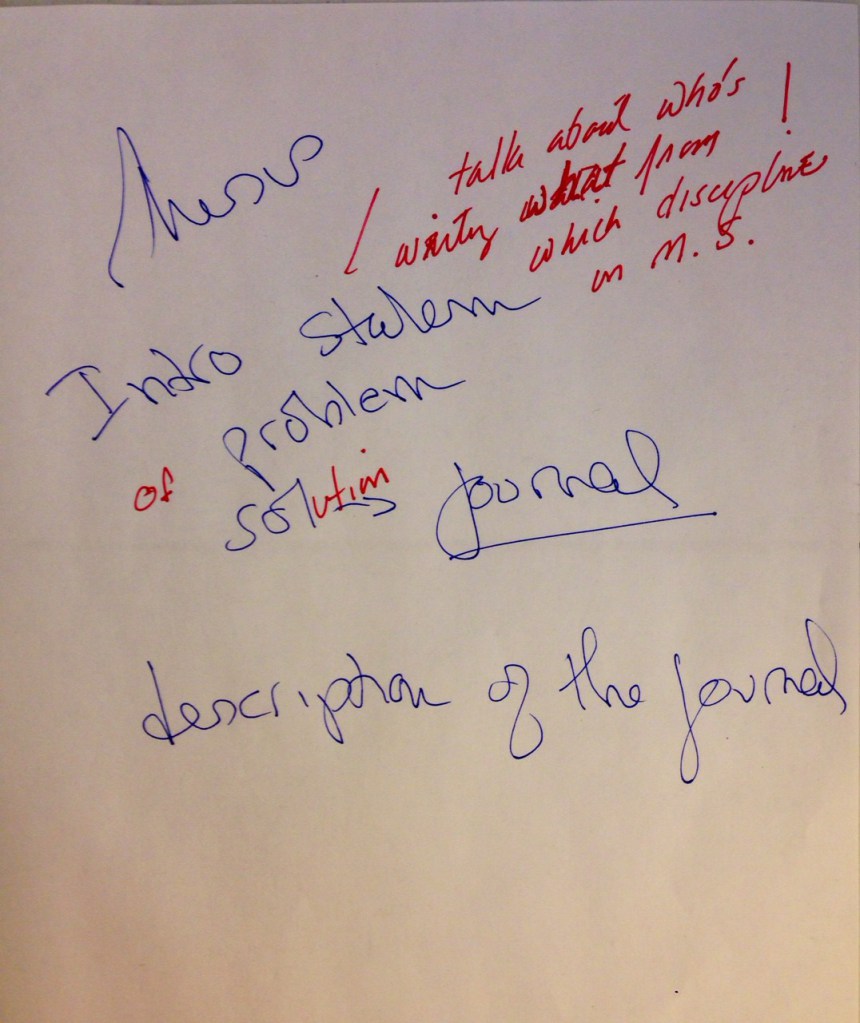 thesis
talk about who's !
/ writing what from
which discipline
in M. S.
Intro Statem
of problem
solution journal
description of the journal